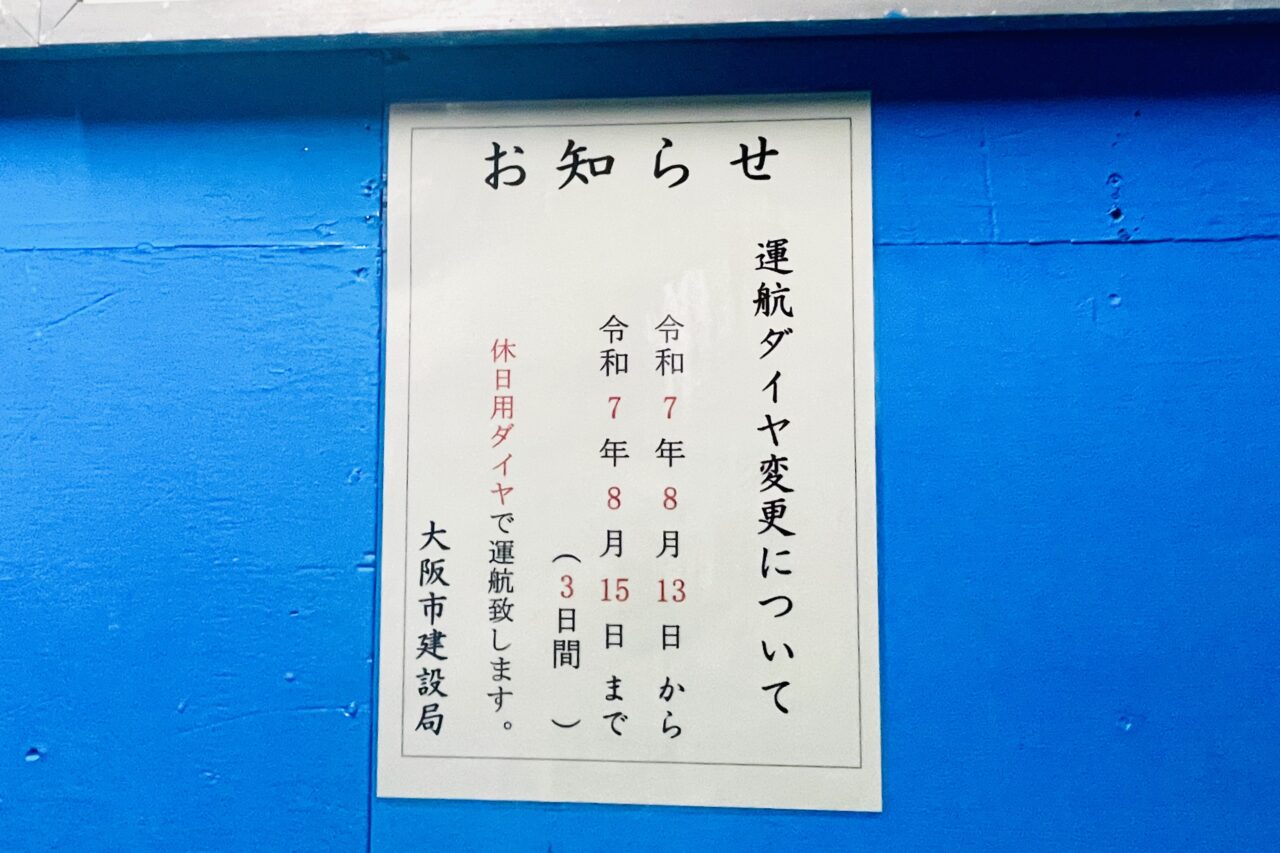 お知らせ
運航ダイヤ変更について
令和7年8月13日から
令和7年8月15日まで
(3日間)
休日用ダイヤで運航致します。
大阪市建設局